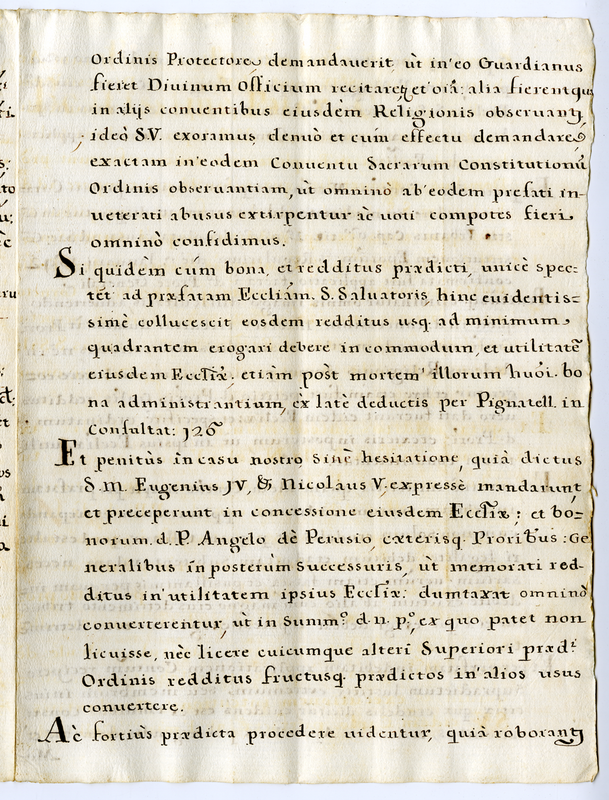 Ordinis Protectore demandauerit ùt in'eo Guardianus
fieret Diuinum Officium recitareq et oĩa: alia fierentqu
in alijs conuentibus eiusdèm Religionis obseruant,
ideò S.V. exoramus denuò et cum effectu demandare
exactam in'eodem Conuentu Sacrarum Constitutionũ
Ordinis obseruantiam, ùt omninò ab'eodem prefati in-
ueterati abusus extirpentur àc uoti compotes fieri
omninò confidimus.
Si quidèm cùm bona, et redditus prædicti, unicè spec=
tẽt ad præfatam Eccliãm. S. Saluatoris hinc euidentis=
simè collucescit eosdem redditus usq. ad minimum
quadrantem erogari debere in commodum, et utilitatẽ
eiusdem Eccliæ. etiàm pòst mortem' illorum huõi. bo
na administrantium, èx latè deductis per Pignatell. in
Consultat: 126
Et penitùs in casu nostro sinè hesitatione, quià dictus
S.M. Eugenius IV, & Nicolaus V, expressè mandarunt
et preceperunt in concessione eiusdem Eccliæ; et bo=
norum. d. P. Angelo dè Perusio, exterisq. Prioribus: Ge
neralibus in posterùm successuris, ùt memorati red-
ditus in'utilitatem ipsius Eccliæ. dumtaxat omninò
conuerterentur, ùt in Summ.º d. n. p.º, ex quo patet non
licuisse, nèc licere cuicumque alteri Superiori præd.ᵗⁱ
Ordinis redditus fructusq. prædictos in'alios usus
conuertere.
Ac fortiùs prædicta procedere uidentur, quià roborant